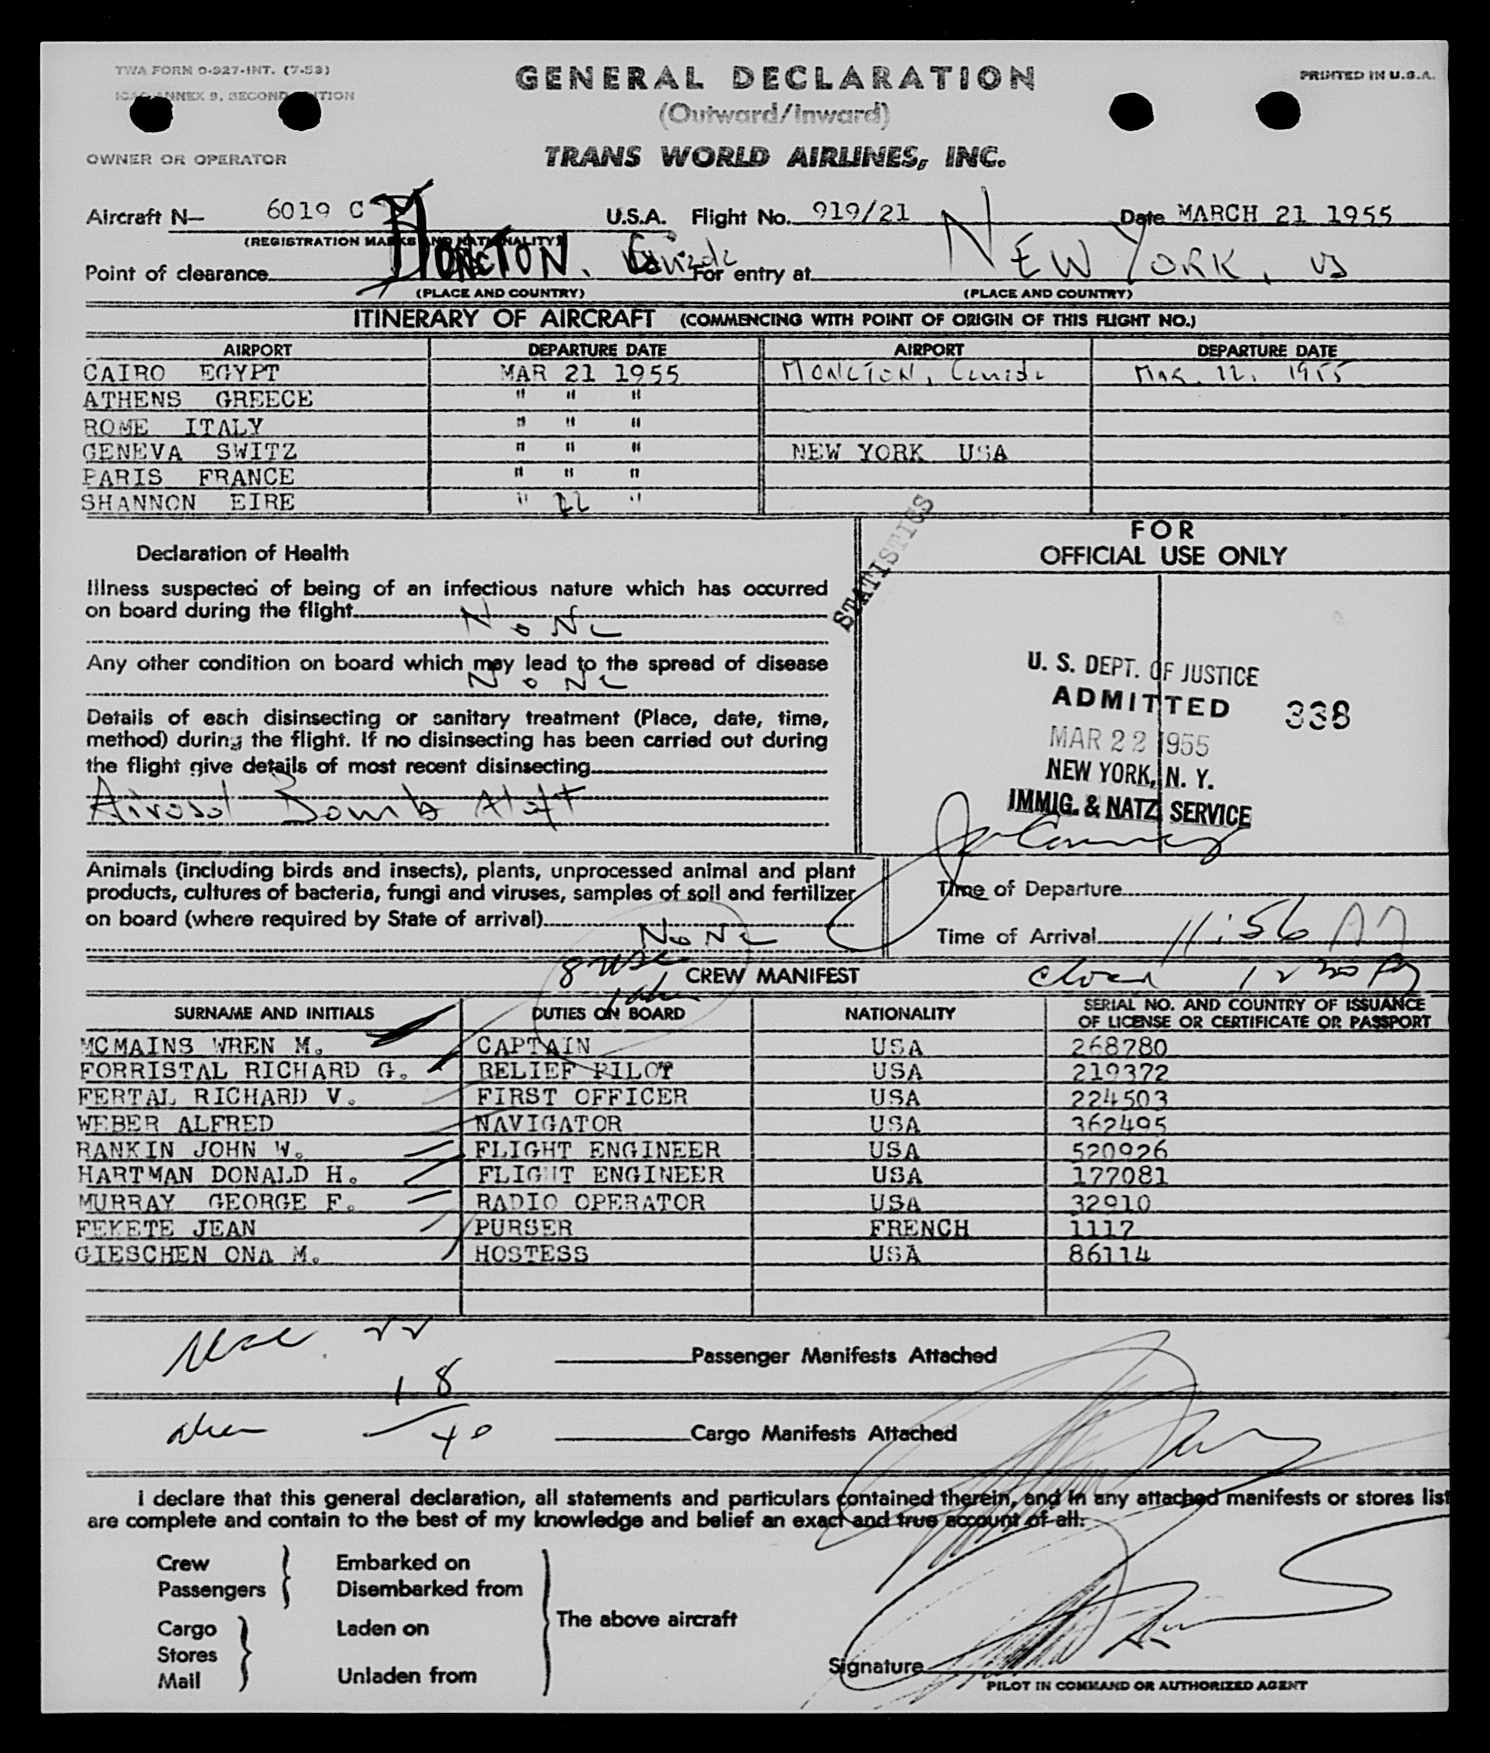 TWA FORM O-927-INT. (7-53)
GENERAL DECLARATION
PRINTED IN U.S.A.
ICAO ANNEX 9, SECOND EDITION
(Outward/Inward)
OWNER OR OPERATOR
TRANS WORLD AIRLINES, INC.
Aircraft N— 6019 C U.S.A. Flight No. 919/21 Date MARCH 21 1955
(REGISTRATION MARKS AND NATIONALITY)
Point of clearance MONCTON, Canada For entry at NEW YORK, US
(PLACE AND COUNTRY) (PLACE AND COUNTRY)
ITINERARY OF AIRCRAFT (COMMENCING WITH POINT OF ORIGIN OF THIS FLIGHT NO.)
AIRPORT DEPARTURE DATE AIRPORT DEPARTURE DATE
CAIRO EGYPT MAR 21 1955 MONCTON, Canada Mar. 22, 1955
ATHENS GREECE " " "
ROME ITALY " " "
GENEVA SWITZ " " " NEW YORK USA
PARIS FRANCE " " "
SHANNON EIRE " 22 "
STATISTICS
FOR
OFFICIAL USE ONLY
Declaration of Health
Illness suspected of being of an infectious nature which has occurred
on board during the flight
None
Any other condition on board which may lead to the spread of disease
None
Details of each disinsecting or sanitary treatment (Place, date, time,
method) during the flight. If no disinsecting has been carried out during
the flight give details of most recent disinsecting
Airosol Bomb Aloft
U. S. DEPT. OF JUSTICE
ADMITTED 338
MAR 22 1955
NEW YORK, N. Y.
IMMIG. & NATZ. SERVICE
Animals (including birds and insects), plants, unprocessed animal and plant
products, cultures of bacteria, fungi and viruses, samples of soil and fertilizer
on board (where required by State of arrival)
None
Time of Departure
Time of Arrival 11:56 AM
CREW MANIFEST
SURNAME AND INITIALS DUTIES ON BOARD NATIONALITY SERIAL NO. AND COUNTRY OF ISSUANCE
OF LICENSE OR CERTIFICATE OR PASSPORT
MCMAINS WREN M. CAPTAIN USA 268780
FORRISTAL RICHARD G. RELIEF PILOT USA 219372
FERTAL RICHARD V. FIRST OFFICER USA 224503
WEBER ALFRED NAVIGATOR USA 362495
RANKIN JOHN W. FLIGHT ENGINEER USA 520926
HARTMAN DONALD H. FLIGHT ENGINEER USA 177081
MURRAY GEORGE F. RADIO OPERATOR USA 32910
FEKETE JEAN PURSER FRENCH 1117
GIESCHEN ONA M. HOSTESS USA 86114
22
Passenger Manifests Attached
18
40
Cargo Manifests Attached
I declare that this general declaration, all statements and particulars contained therein, and in any attached manifests or stores list
are complete and contain to the best of my knowledge and belief an exact and true account of all:
Crew Embarked on
Passengers Disembarked from
The above aircraft
Cargo Laden on
Stores
Mail Unladen from
Signature
PILOT IN COMMAND OR AUTHORIZED AGENT